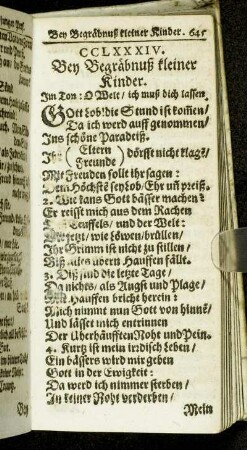 Bey Begräbnuß kleiner Kinder. 645
CCLXXXIV.
Bey Begräbnuß kleiner
Kinder.
Im Ton: O Welt / ich muß dich lassen
GOtt Lob! die Stund ist kom̃en /
Da ich werd auff genommen /
Ins schöne Paradeiß.
Eltern
Freunde
dörfft nicht klagẽ /
Mit Freuden sollt ihr sagen:
Dem Höchstẽ sey Lob / Ehr uñ preiß.
2. Wie kans Gott bässer machen?
Er reißt mich aus dem Rachen
Des Teuffels / und der Welt:
Die jetzt / wie Löwen / brüllen /
Ihr Grimm ist nicht zu stillen /
Biß alles übern Hauffen fällt.
3. Diß sind die letzte Tage /
Da nichts / als Angst und Plage /
Mit Hauffen bricht herein:
Mich nimmt nun Gott von hinnẽ /
Und lässet mich entrinnen
Der Uberhäufften Noht und Pein.
4. Kurtz ist mein irrdisch Leben /
Ein bässers wird mir geben
Gott in der Ewigkeit:
Da werd ich nimmer sterben /
In keiner Noht verderben /
Mein